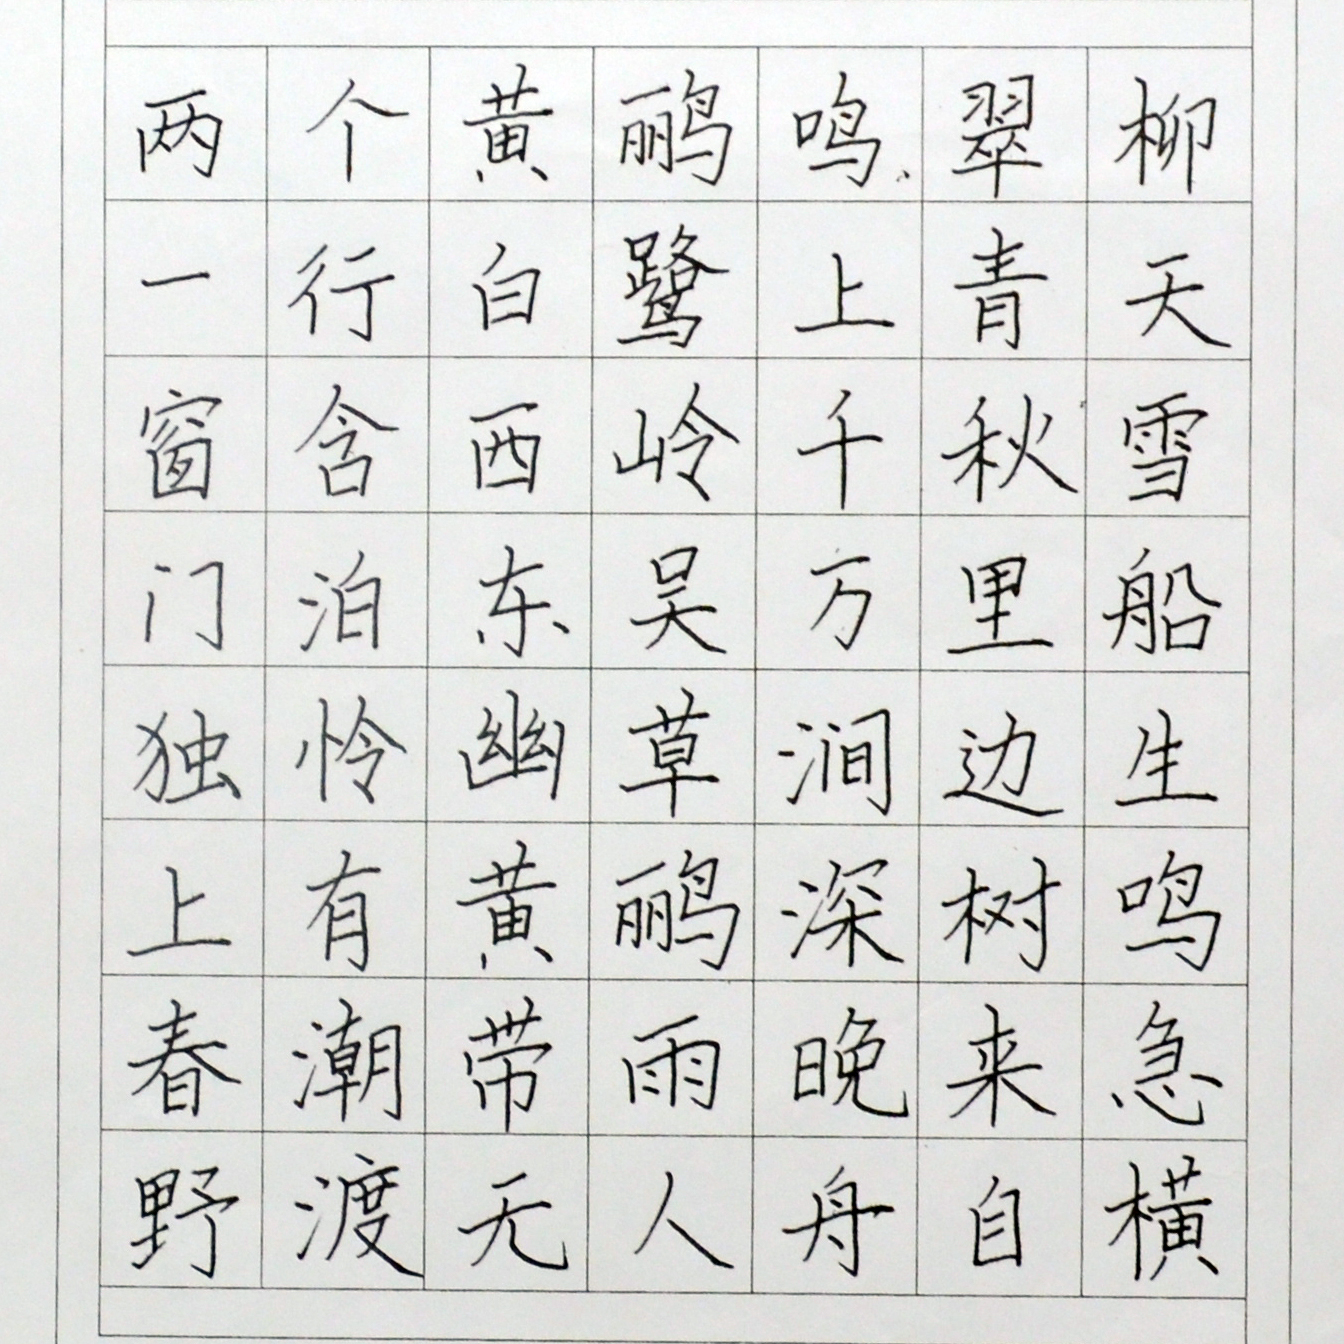 两个黄鹂鸣翠柳
一行白鹭上青天
窗含西岭千秋雪
门泊东吴万里船
独怜幽草涧边生
上有黄鹂深树鸣
春潮带雨晚来急
野渡无人舟自横